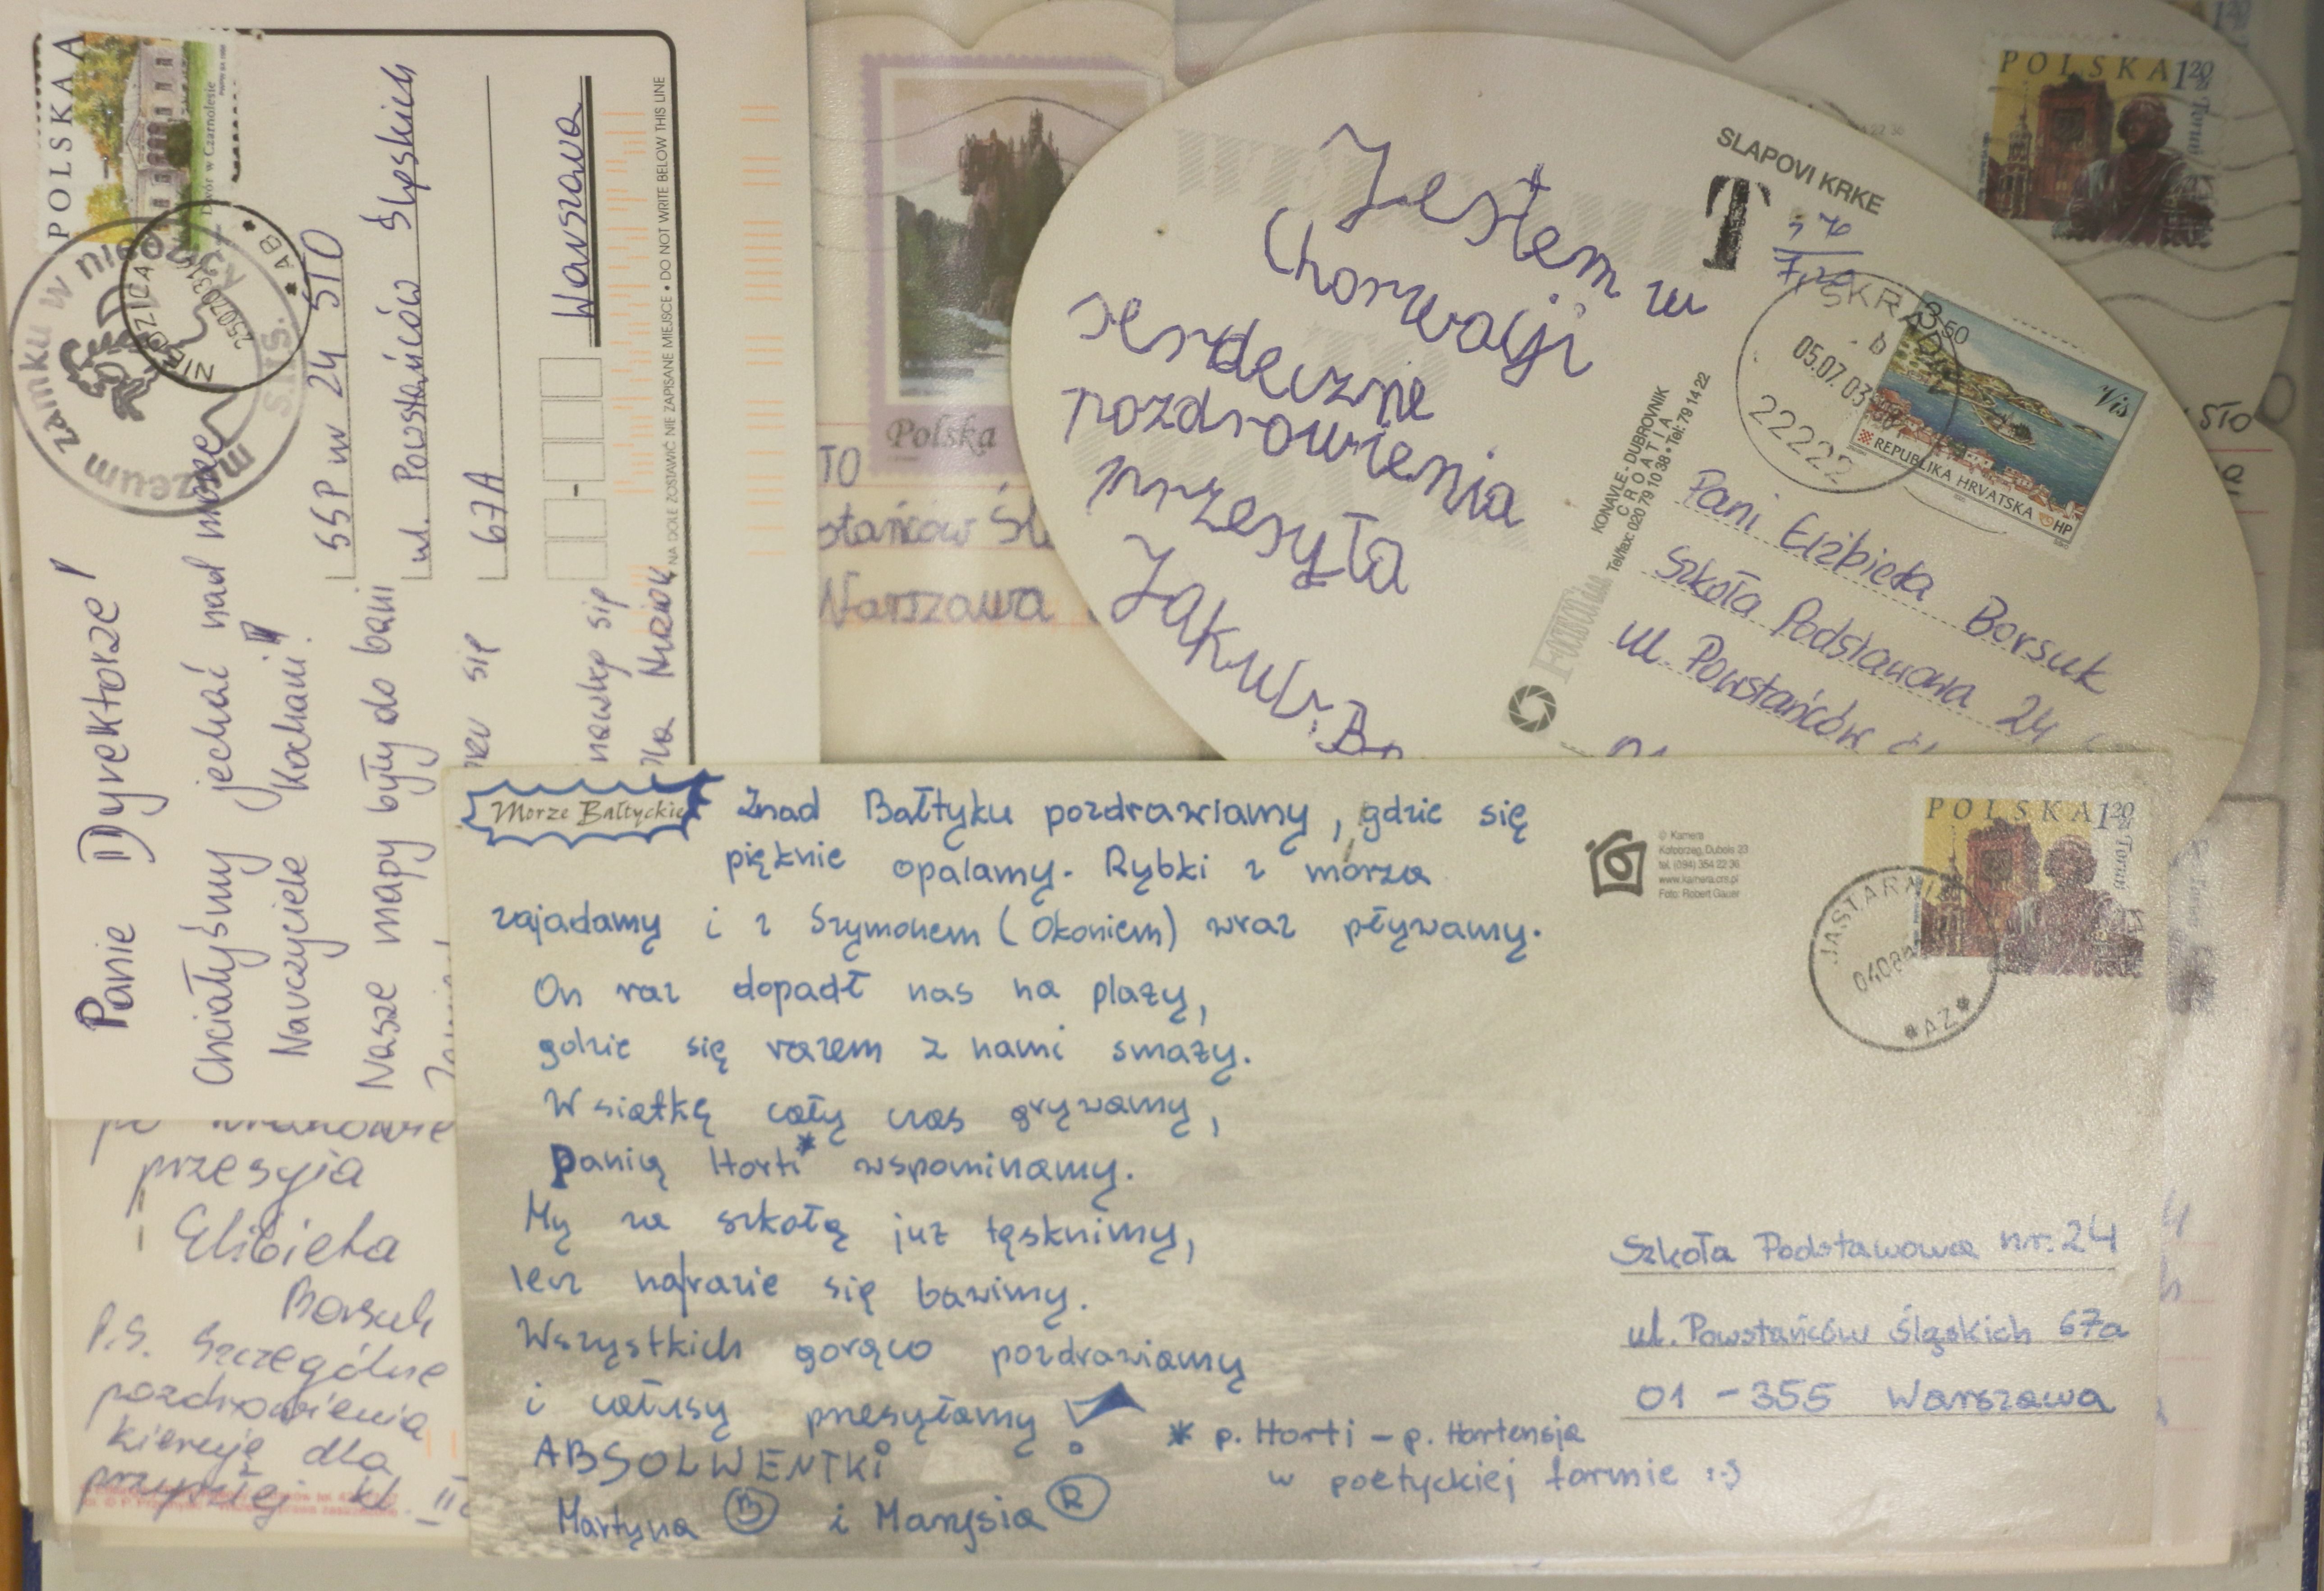 POLSKA A
Dwór w Czarnolesie
muzeum zamku w niedzicy
S.H.S.
NIEDZICA
250703
* AB *
Panie Dyrektorze!
Chciałyśmy jechać nad morze
Nauczyciele Kochani!
Nasze mapy były do bani
się
nawkę się
dla Nusiok
SSP nr 24 STO
ul. Powstańców Śląskich
67A
Warszawa
NA DOLE ZOSTAWIĆ NIE ZAPISANE MIEJSCE • DO NOT WRITE BELOW THIS LINE
Polska
TO
stańców Ślą
Warszawa
Jestem w
Chorwacji
serdeczne
pozdrowienia
przesyła
Jakub B
SLAPOVI KRKE
T
SKRADIN
05.07.03
22222
3,50
Vis
REPUBLIKA HRVATSKA
HP
KONAVLE - DUBROVNIK
CROATIA
Tel/fax: 020 79 10 38 • Tel: 79 14 22
Pani Elżbieta Borsuk
Szkoła Podstawowa 24
ul. Powstańców
POLSKA 1,20 zł
Toruń
STO
przesyła
Elżbieta
Borsuk
P.S. Szczególne
pozdrowienia
kieruję dla
przyszłej kl. II
Morze Bałtyckie
Znad Bałtyku pozdrawiamy, gdzie się
pięknie opalamy. Rybki z morza
zajadamy i z Szymonem (Okoniem) wraz pływamy.
On raz dopadł nas na plaży,
gdzie się razem z nami smaży.
W siatkę cały czas grywamy,
Panią Horti* wspominamy.
My za szkołą już tęsknimy,
lecz narazie się bawimy.
Wszystkich gorąco pozdrawiamy
i całusy przesyłamy!
ABSOLWENTKI
Martyna B i Marysia R
* p. Horti – p. Hortensja
w poetyckiej formie :-)
© Kamera
Kołobrzeg, Dubois 23
tel. (094) 354 22 36
www.kamera.crs.pl
Foto: Robert Gauer
POLSKA 1,20 zł
Toruń
JASTARNIA
0408
* AZ *
Szkoła Podstawowa nr. 24
ul. Powstańców Śląskich 67a
01-355 Warszawa